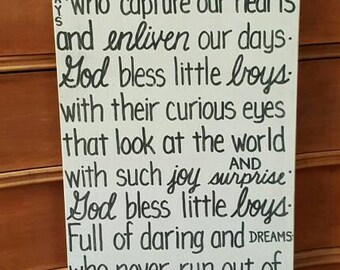 who capture our hearts
and enliven our days.
God bless little boys.
with their curious eyes
that look at the world
with such joy AND surprise.
God bless little boys.
Full of daring and DREAMS
who never run out of